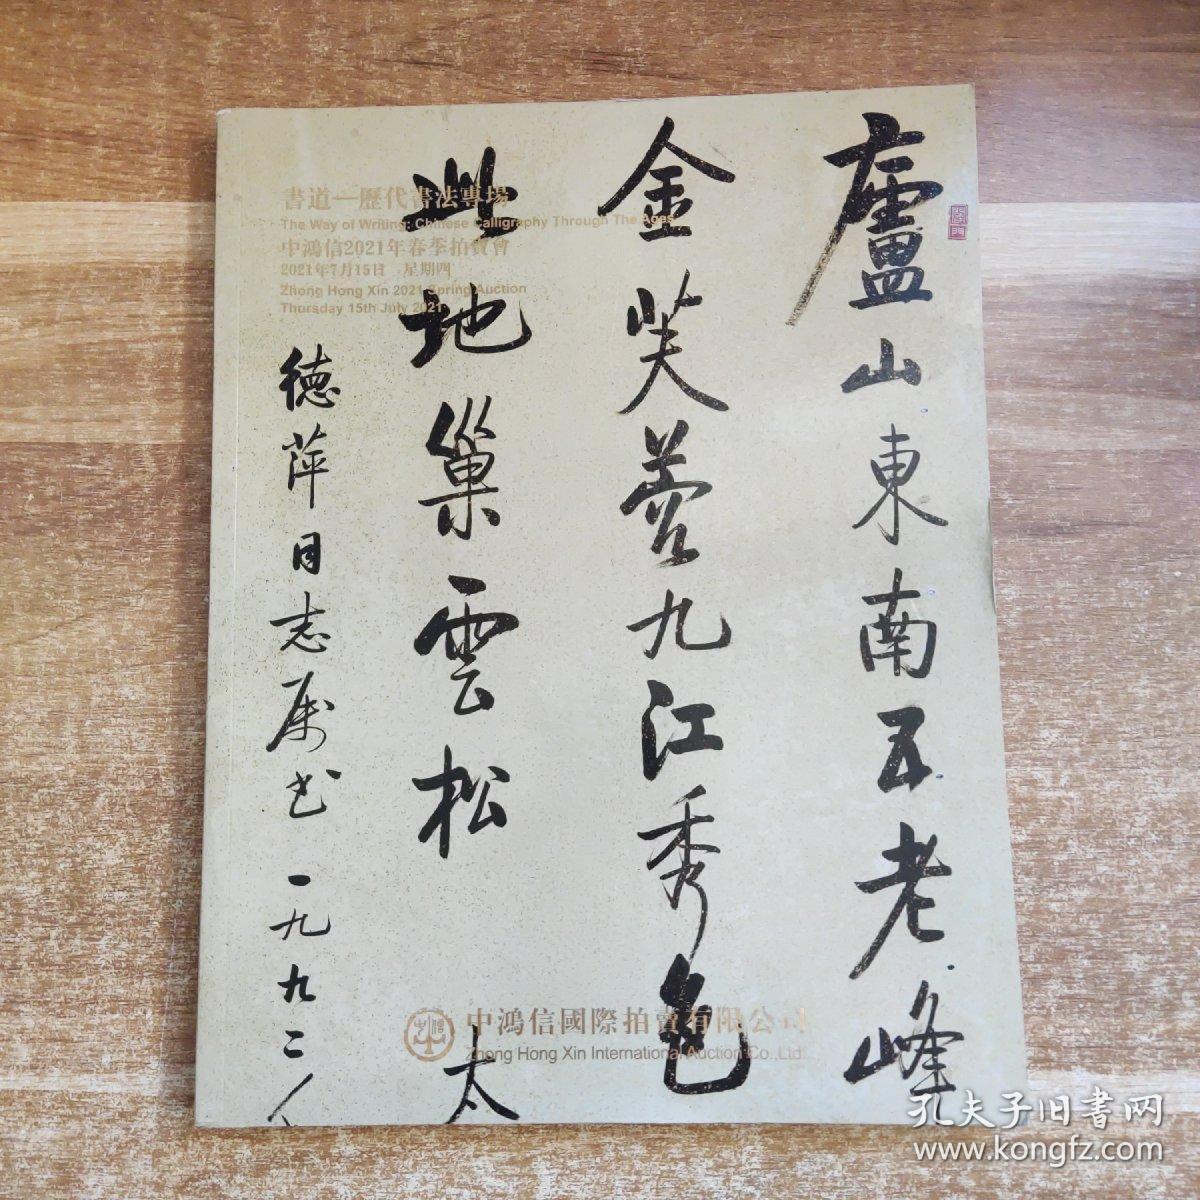 廬山東南五老峰
金芙蓉九江秀色
此地巢雲松 太
德萍同志属书 一九九二
書道—歷代書法專場
The Way of Writing: Chinese Calligraphy Through The Ages
中鴻信2021年春季拍賣會
2021年7月15日 星期四
Zhong Hong Xin 2021 Spring Auction
Thursday 15th July 2021
中鴻信國際拍賣有限公司
Zhong Hong Xin International Auction Co.,Ltd.
孔夫子旧书网
www.kongfz.com